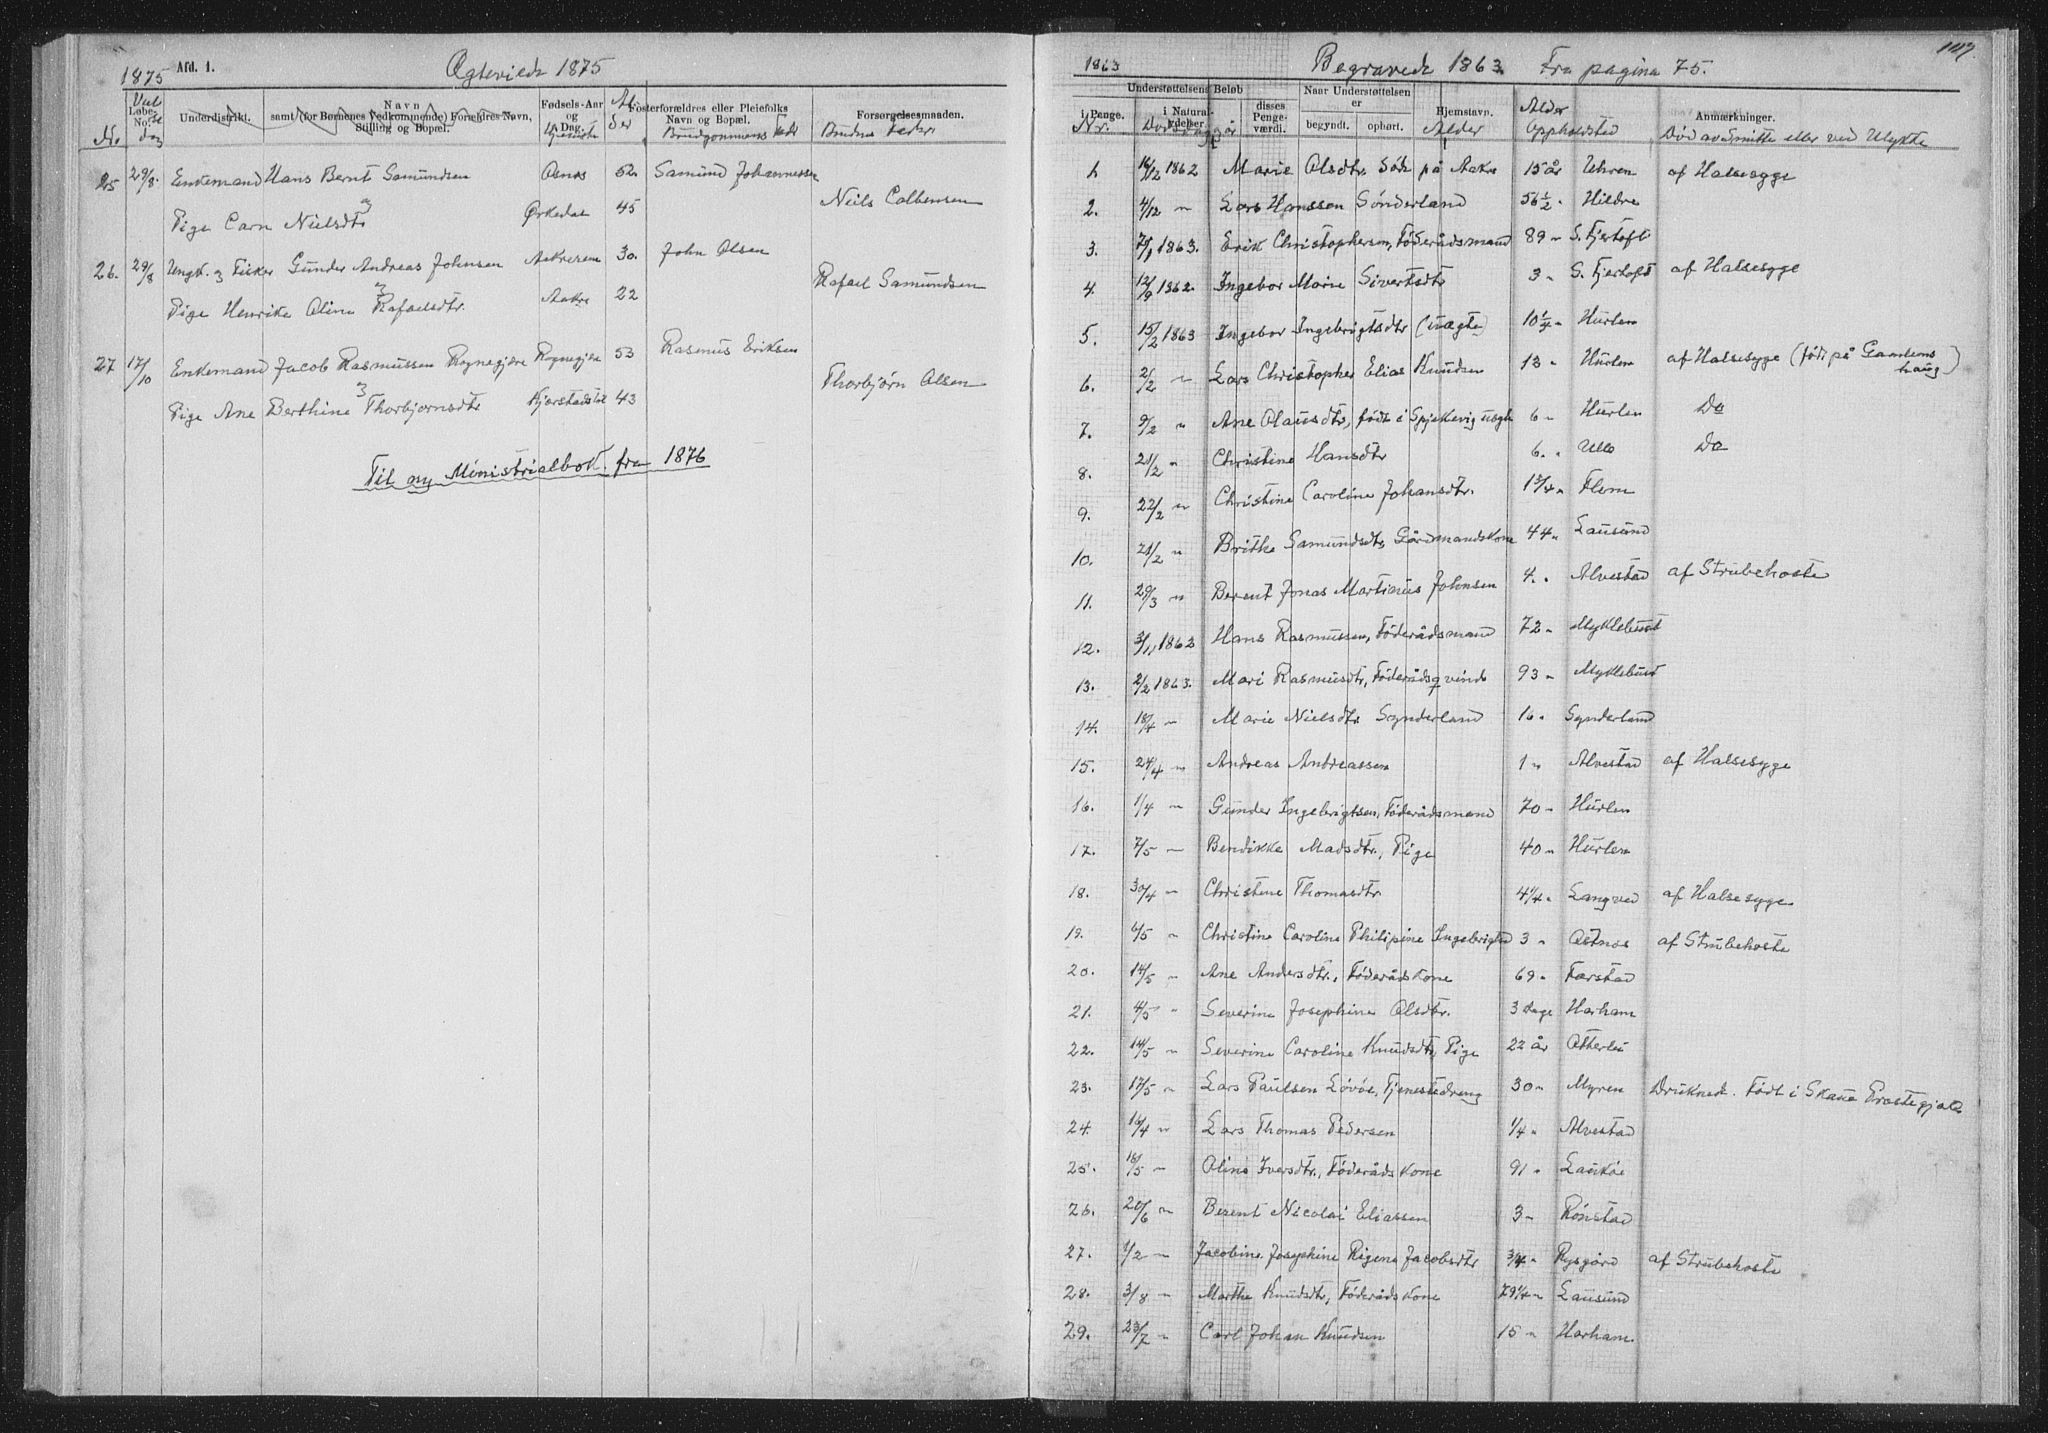 1875 Afd. 1. Ægteviede 1875
Løbe-No. Underdistrikt. Navn samt (for Børnenes Vedkommende) Forældres Navn, Stilling og Bopæl. Fødsels-Aar og Dag. Fosterforældres eller Pleiefolks Navn og Bopæl. Forsørgelsesmaaden.
No. Alder Brudgommens Fader Brudens Fader
25 29/8. Enkemand Hans Bernt Samundsen Osnes 52. Samund Johannessen
og
Pige Carn Nielsdtr Ørkedal 45 Niels Colbensen
26. 29/8 Ungk. og Fisker Gunder Andreas Johnsen Aakre 30. John Olsen
og
Pige Henrike Oline Rafaelsdtr. Aakre 22 Rafael Samundsen
27 17/10 Enkemand Jacob Rasmussen Rognegjære Rognegjære 53 Rasmus Eriksen
og
Pige Ane Berthine Thorbjornsdtr Kjerstadstøl 43 Thorbjørn Olsen
Til ny Ministrialbok fra 1876
147.
1863 Begravede 1863. Fra pagina 75.
Understøttelsens Beløb Naar Understøttelsen er
i Penge. i Natural-ydelser. disses Penge-værdi. begyndt. ophørt. Hjemstavn. Anmærkninger.
Nr. Dødsdag Alder Opholdsted Død av Smitte eller ved Ulykke
1. 16/12 1862 Marie Olsdtr. Søde på Aakre 15 år Uhren af Halsesyge
2. 4/12 " Lars Hanssen Sønderland 56 1/2 " Hildre
3. 7/1 1863. Erik Christophersen, Føderådsmand 89 " S. Fjertoft
4. 12/9 1862. Ingebor Marie Sivertsdtr 3 " S. Fjertoft af Halsesyge
5. 15/2 1863 Ingebor Ingebrigtsdtr (uægte) 10 1/4 " Hurlen
6. 2/2 " Lars Christopher Elias Knudsen 13 " Hurlen af Halsesyge (født på Gamlemshaug)
7. 9/2 " Ane Olausdtr, født i Spjelkevig uægte 6 " Hurlen Do
8. 21/2 " Christine Hansdtr 6. " Ulla Do
9. 22/2 " Christine Caroline Johansdtr. 1 3/4 " Flem
10. 21/2 " Brithe Samundsdtr, Gårdmandskone 44 " Lausund
11. 29/3 " Berent Jonas Martinus Johnsen 4. " Alvestad af Strubehoste
12. 3/11 1863 Hans Rasmussen, Føderådsmand 72 " Myklebust
13. 2/2 1863. Mari Rasmusdtr, Føderådsqvinde 93 " Myklebust
14. 18/4 " Marie Nielsdtr Synderland 16 " Synderland
15. 24/4 " Andreas Andreassen 1 " Alvestad af Halsesyge
16. 1/4 " Gunder Ingebrigtsen, Føderådsmand 70 " Hurlen
17. 7/5 " Bendikke Madsdtr., Pige 40 " Hurlen
18. 30/4 " Christine Thomasdtr 4 1/4 " Langved af Halsesyge
19. 6/5 " Christine Caroline Philipine Ingebrigtsd 3 " Østnes af Strubehoste
20. 14/5 " Ane Andersdtr., Føderådskone 69 " Færstad
21. 4/5 " Severine Josephine Olsdtr. 3 Dage Harham
22. 14/5 " Severine Caroline Knudsdtr, Pige 22 år Otterlei
23. 17/5 " Lars Paulsen Løvøe, Tjenestedreng 30 " Myren Druknede. Født i Skaue Præstegjæld
24. 16/4 " Lars Thomas Pedersen 1/4 " Alvestad
25. 16/5 " Oline Iversdtr., Føderådskone 91 " Laukøe
26. 20/6 " Berent Nicolai Eliassen 3 " Rønstad
27. 1/2 " Jacobine Josephine Rigene Jacobsdtr 3/4 " Rysgård af Strubehoste
28. 3/8 " Marthe Knudsdtr, Føderådskone 79 1/4 " Lausund
29. 23/7 " Carl Johan Knudsen 15 " Harham.